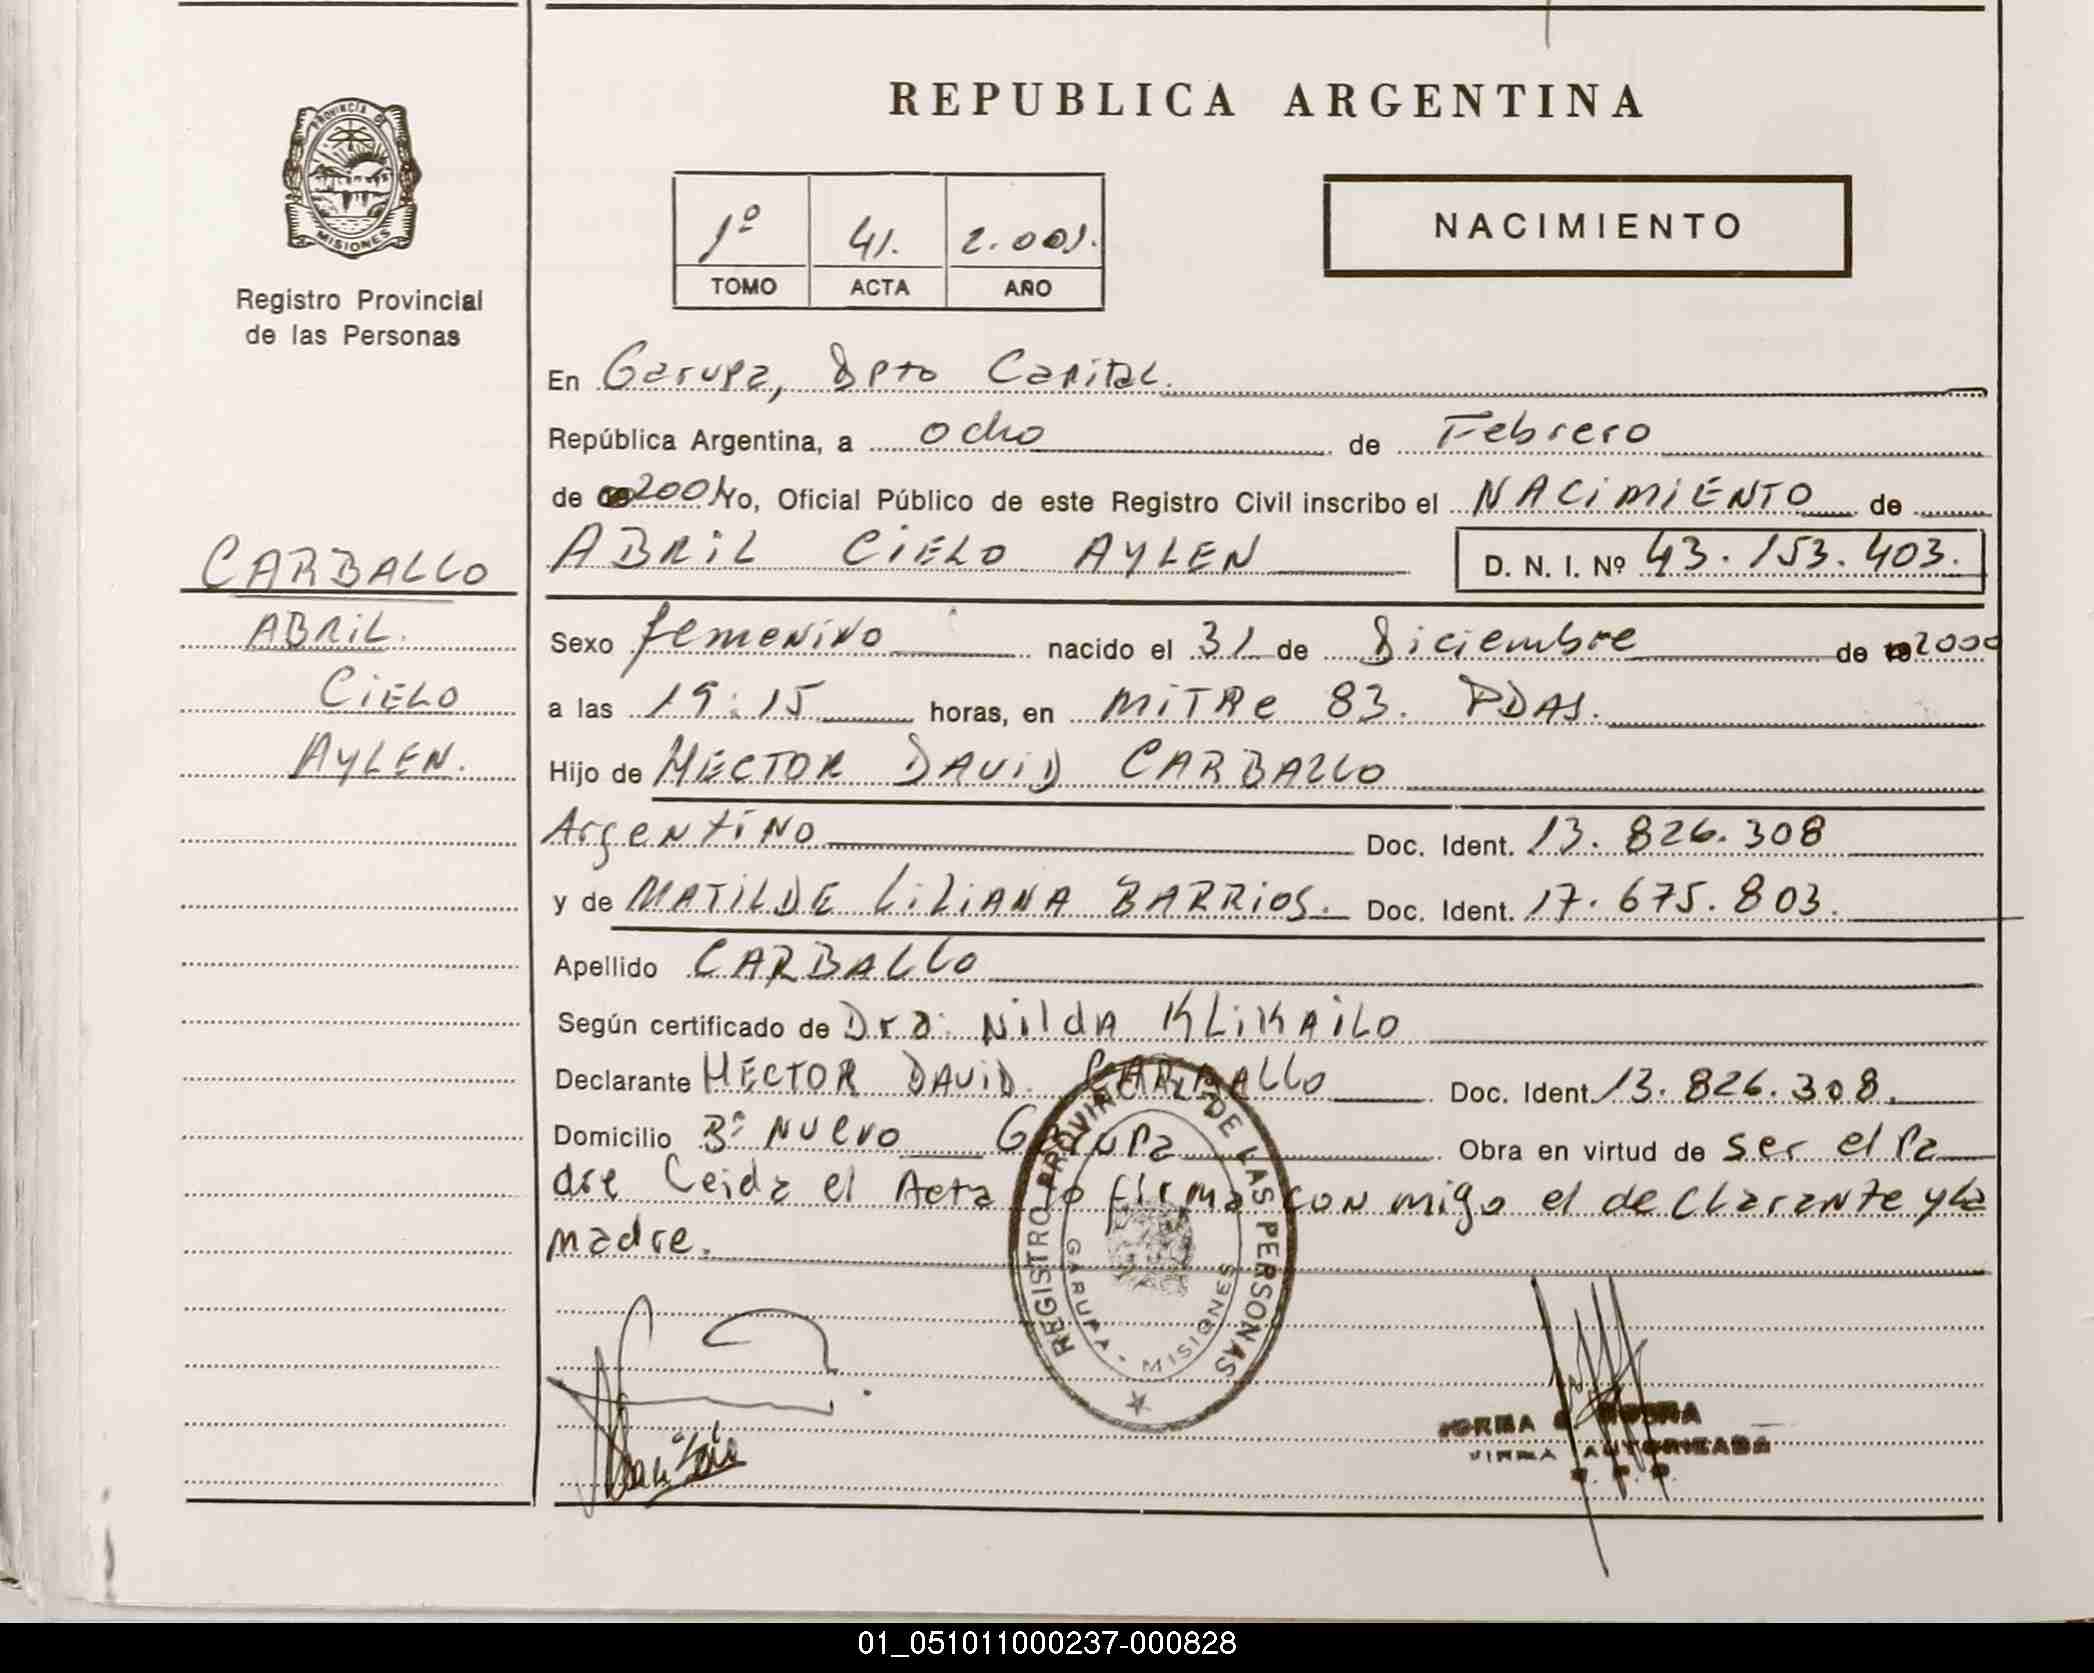 REPUBLICA ARGENTINA
PROVINCIA DE
MISIONES
Registro Provincial
de las Personas
1º 41. 2.001.
TOMO ACTA AÑO
NACIMIENTO
En Garupa, Dpto Capital.
República Argentina, a ocho de Febrero
de 2001 Yo, Oficial Público de este Registro Civil inscribo el NACIMIENTO de
ABRIL CIELO AYLEN D. N. I. Nº 43.153.403.
CARBALLO
ABRIL.
CIELO
AYLEN.
Sexo femenino nacido el 31 de Diciembre de 2000
a las 19:15 horas, en MITRE 83. PDAS.
Hijo de HECTOR DAVID CARBALLO
Argentino Doc. Ident. 13.826.308
y de MATILDE LILIANA BARRIOS. Doc. Ident. 17.675.803.
Apellido CARBALLO
Según certificado de Dra. Nilda KLIKAILO
Declarante HECTOR DAVID CARBALLO Doc. Ident. 13.826.308.
Domicilio Bº NUEVO Garupa Obra en virtud de ser el Pa
dre Leida el Acta lo firma con migo el declarante y la
madre.
REGISTRO PROVINCIAL DE LAS PERSONAS
GARUPA - MISIONES
FIRMA AUTORIZADA
01_051011000237-000828